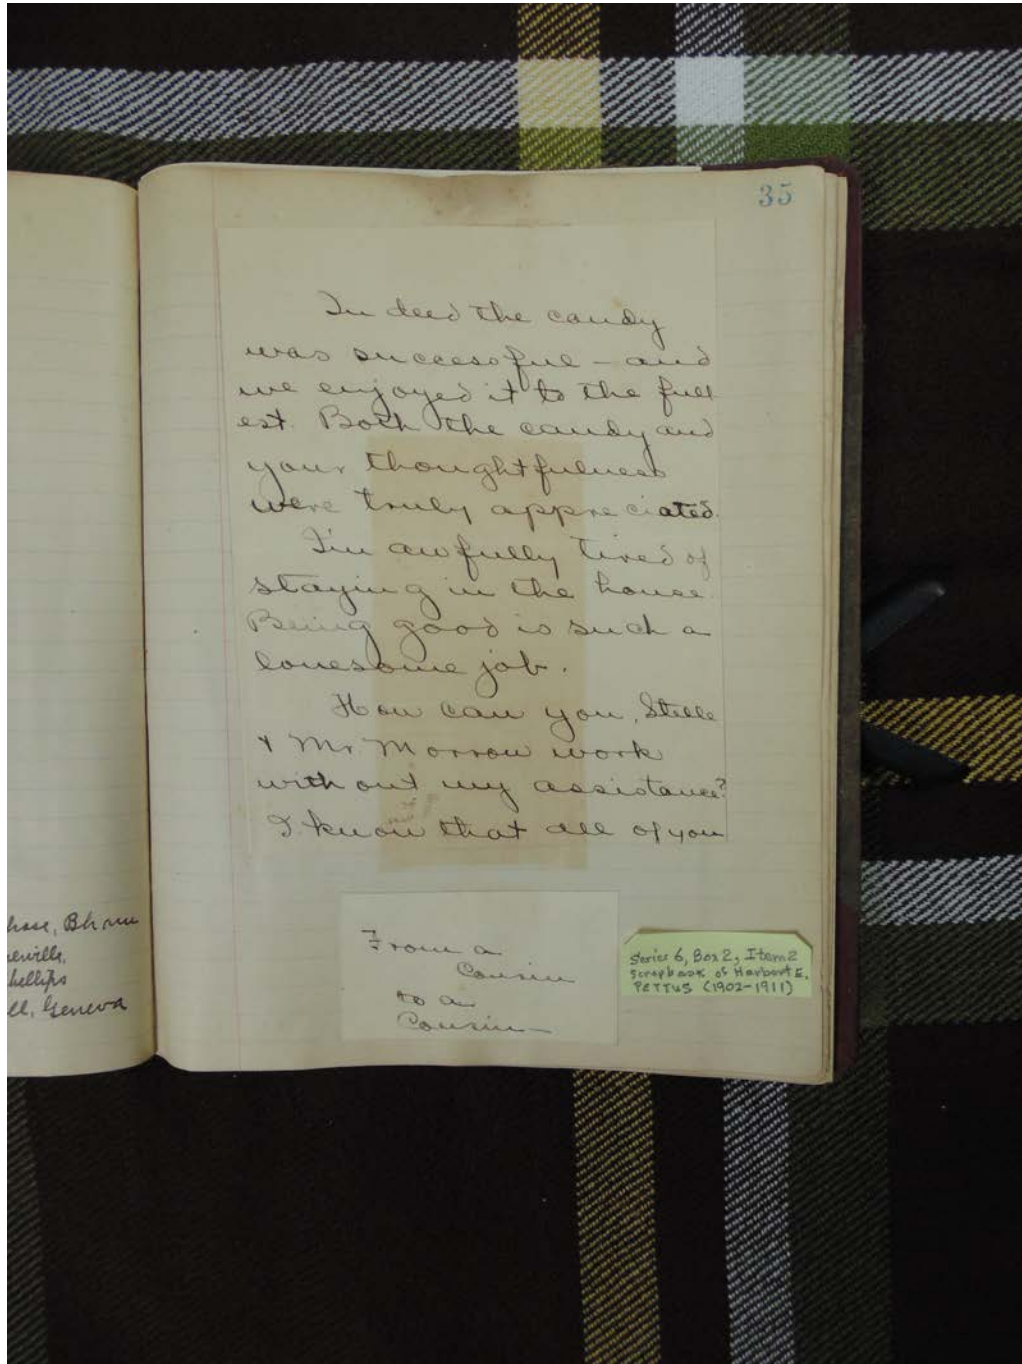 35
In deed the candy
was successful – and
we enjoyed it to the full
est. Both the candy and
your thoughtfulness
were truly appreciated.
I'm awfully tired of
staying in the house.
Being good is such a
lonesome job.
How can you, Stelle
& Mr. Morrow work
without my assistance?
I know that all of you
From a
Cousin
to a
Cousin –
Series 6, Box 2, Item 2
Scrapbook of Harbert E.
PETTUS (1902-1911)
Bhm
erville,
hellips
ll, Geneva